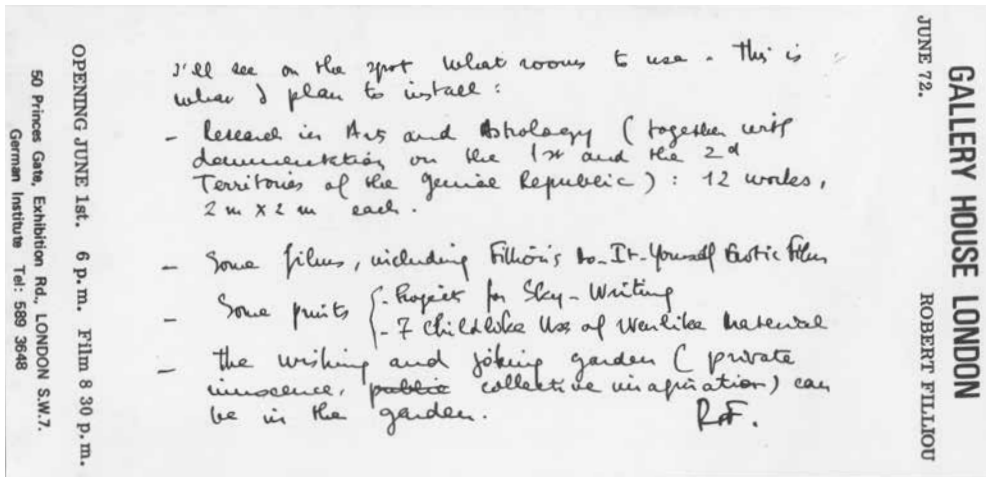 GALLERY HOUSE LONDON
JUNE 72. ROBERT FILLIOU
I'll see on the spot what rooms to use. This is
what I plan to install:
- Research in Arts and Astrology (together with
documentation on the 1st and the 2d
Territories of the Genial Republic): 12 works,
2 m x 2 m each.
- Some films, including Filliou's Do-It-Yourself Erotic Film
- Some prints - Projects for Sky-Writing
- 7 Childlike Use of Warlike Material
- the wishing and joking garden (private
innocence, public collective imagination) can
be in the garden.
R.F.
OPENING JUNE 1st. 6 p.m. Film 8 30 p.m.
50 Princes Gate, Exhibition Rd., LONDON S.W.7.
German Institute Tel: 589 3648